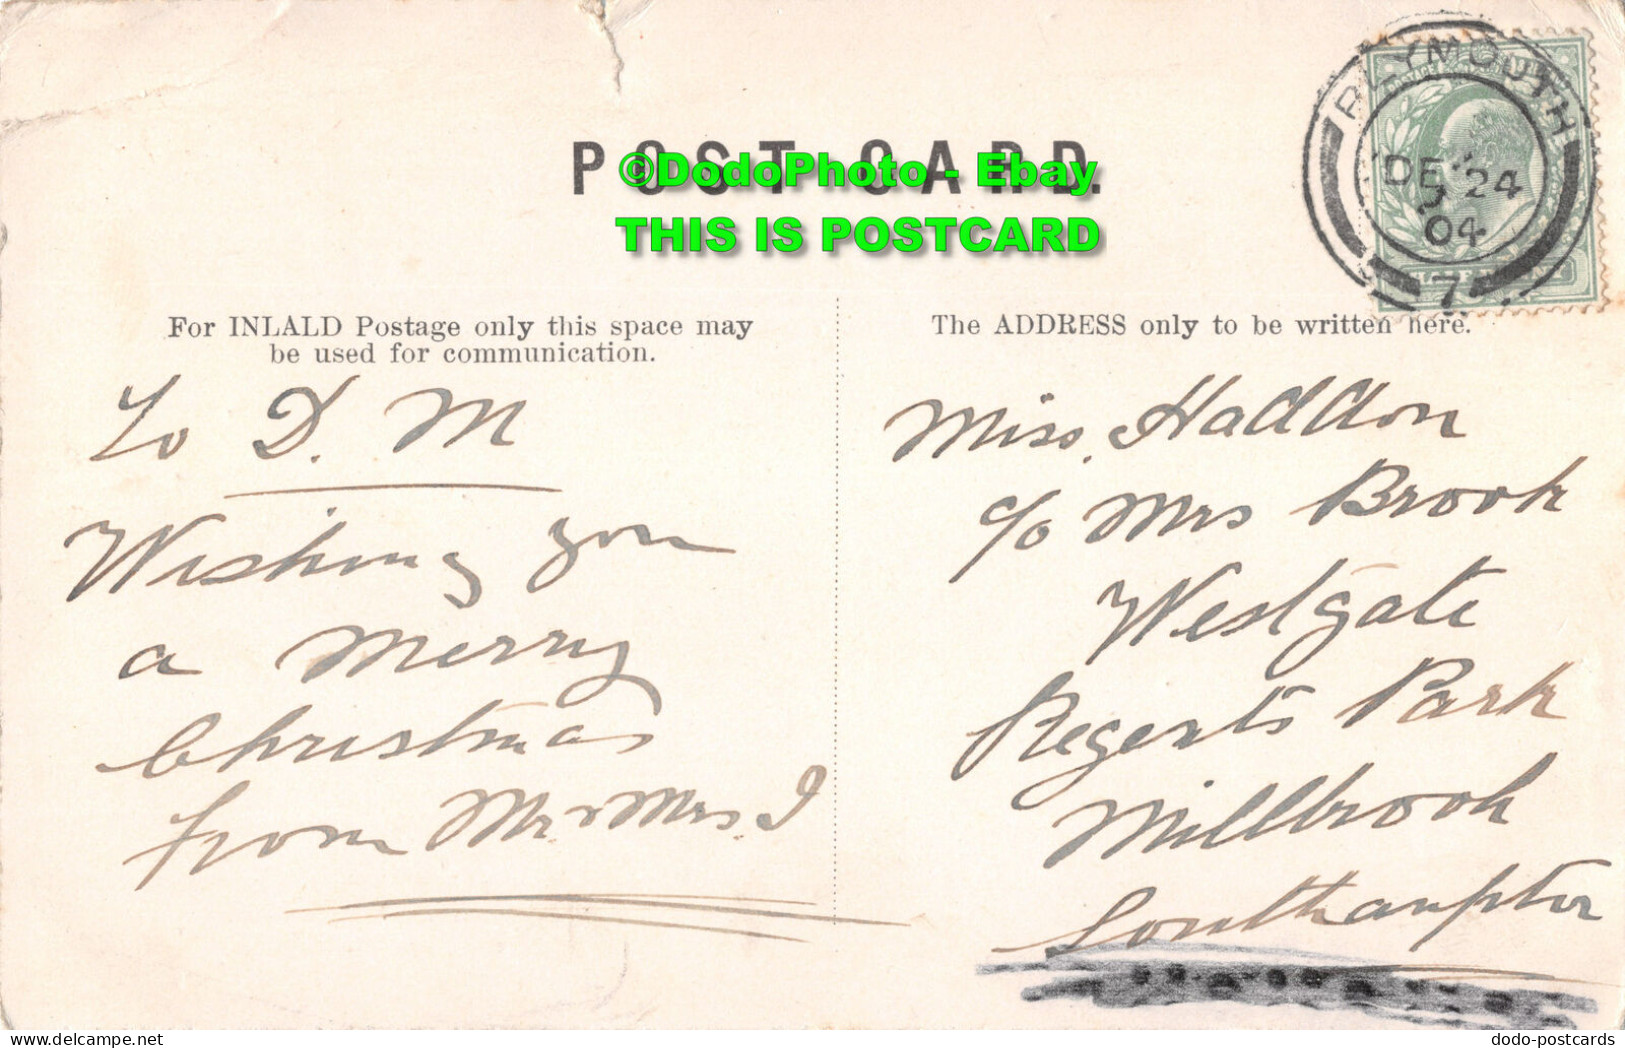 POST CARD.
©DodoPhoto - Ebay
THIS IS POSTCARD
PLYMOUTH
DE 24
04
7
For INLALD Postage only this space may
be used for communication.
The ADDRESS only to be written here.
To D. M
Wishing you
a Merry
Christmas
from Mr & Mrs. I
Miss. Haddon
c/o Mrs Brook
Westgate
Regents Park
Millbrook
Southampton
dodo-postcards